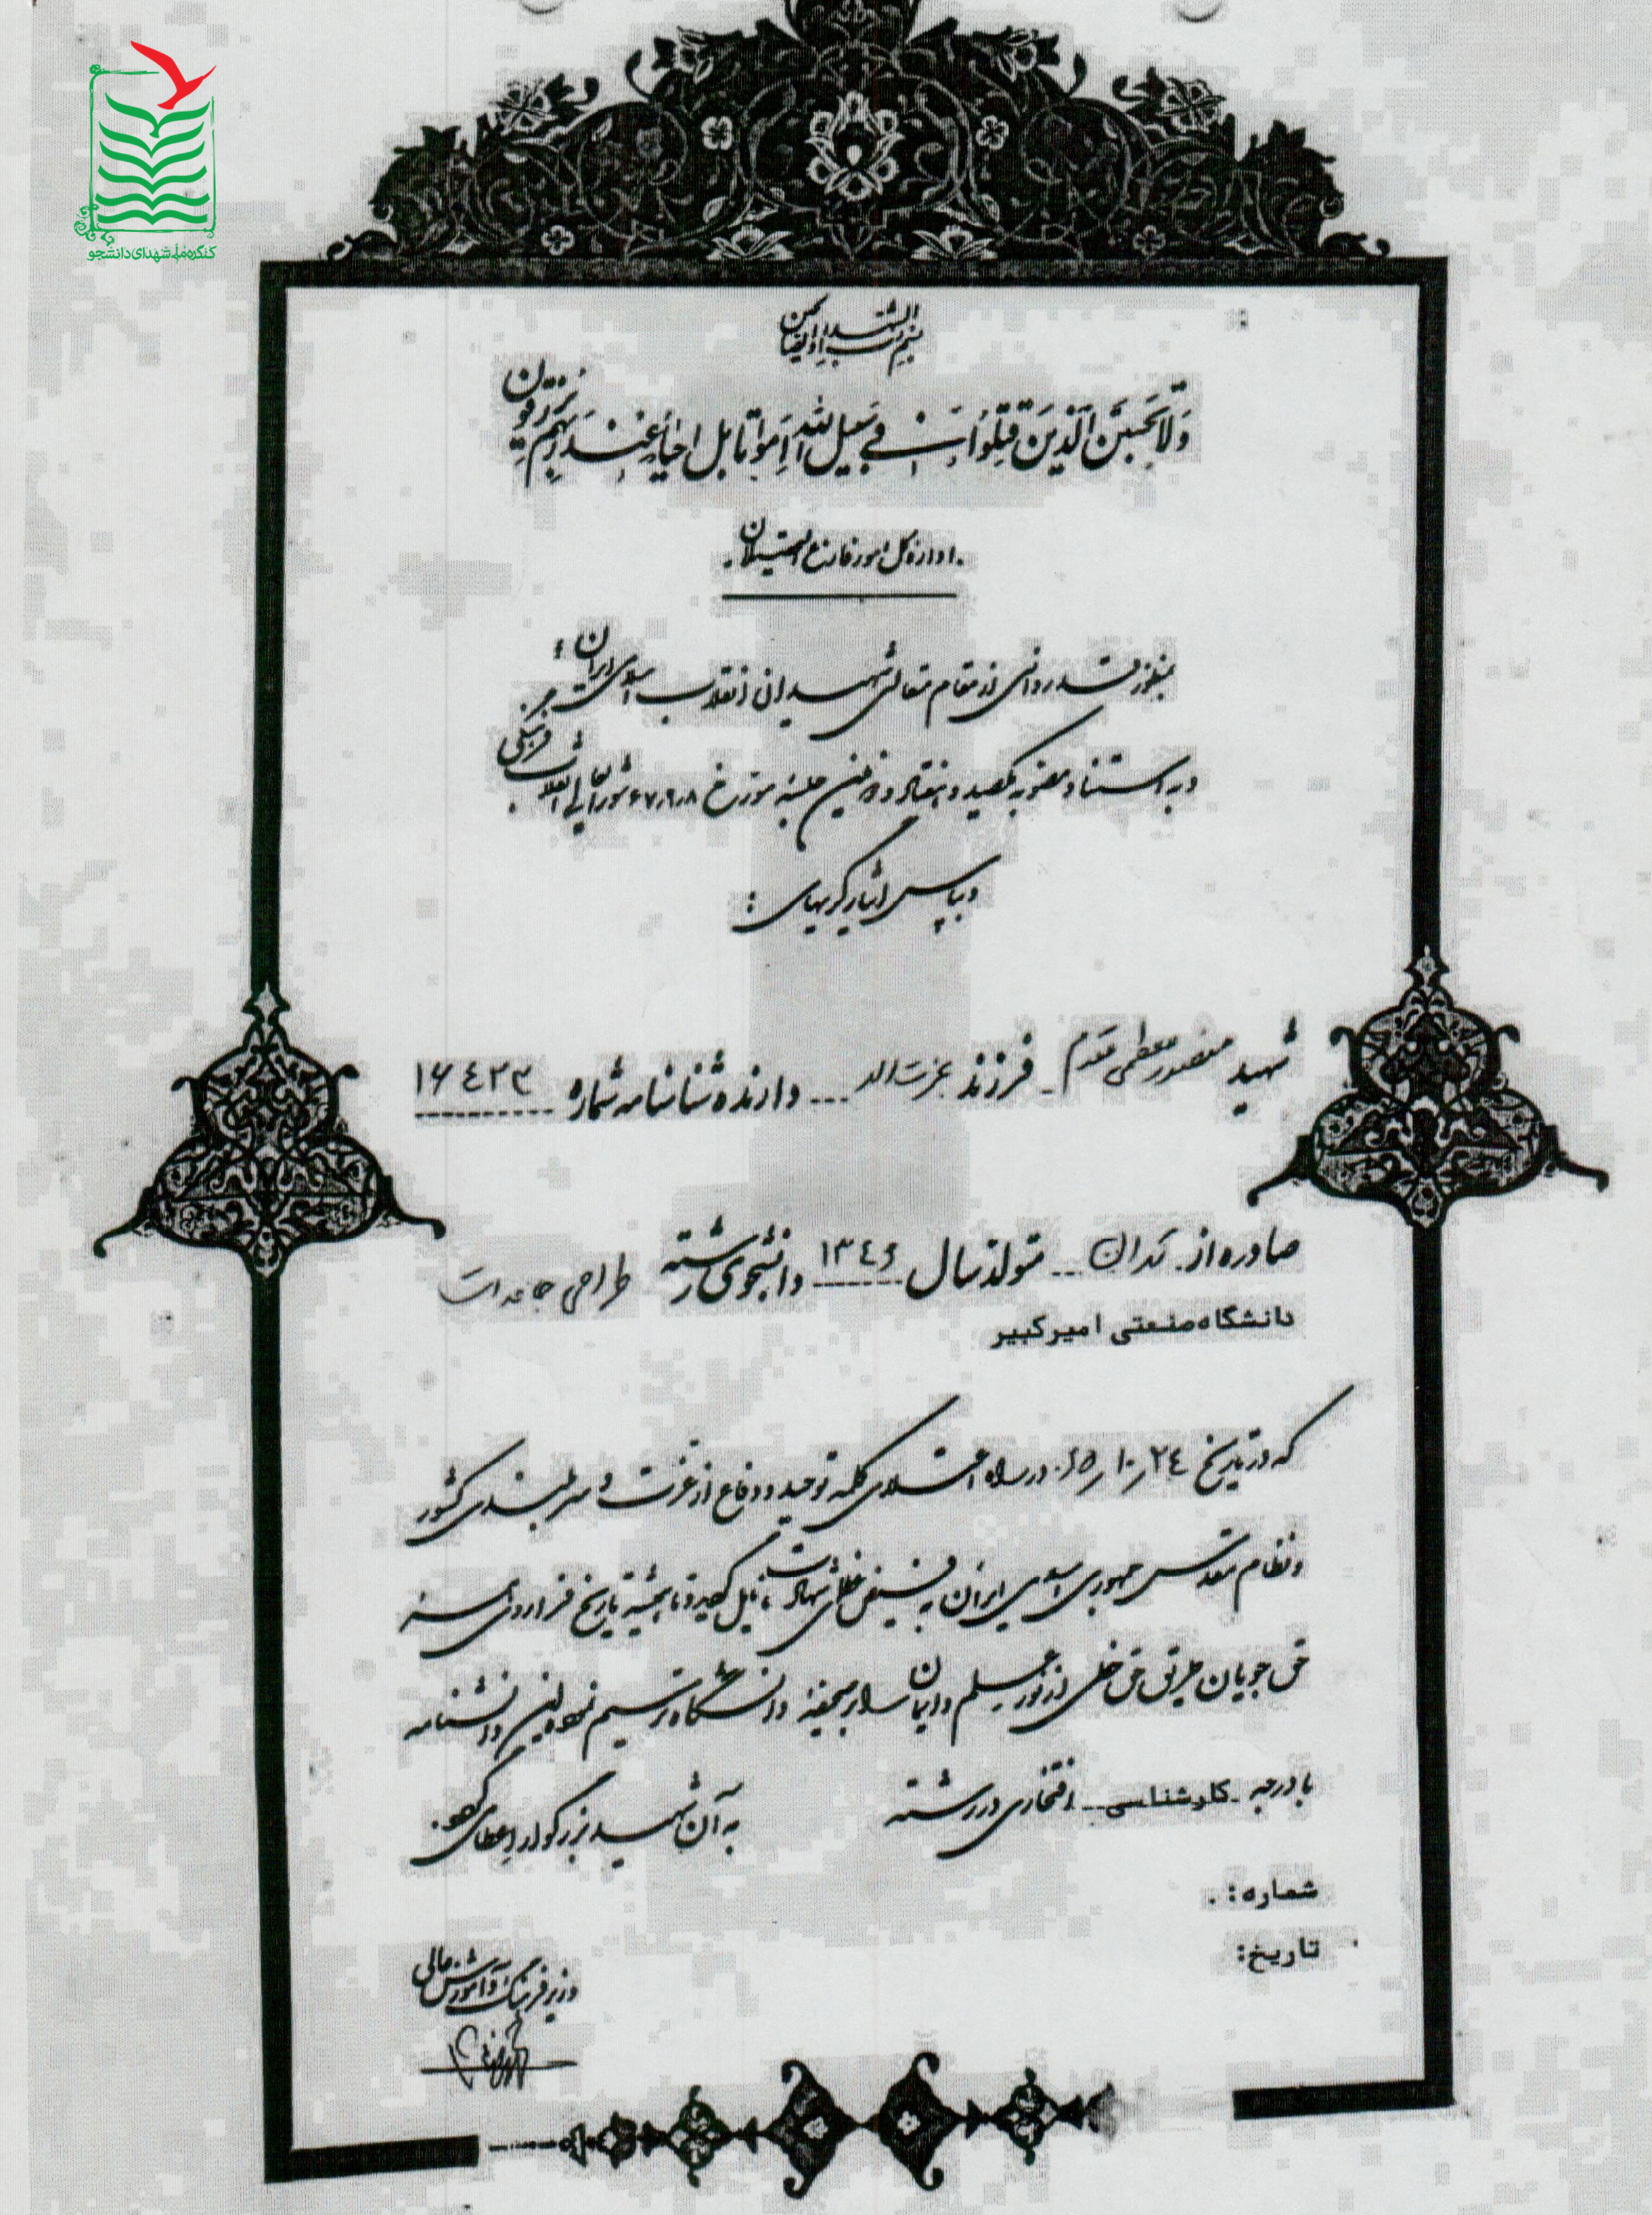 کنگره ملی شهدای دانشجو
بسم رب الشهداء و الصدیقین
وَلاتَحسَبَنَّ الَّذینَ قُتِلوُا فی سَبیل اللهِ اَمواتا بل احیاءٌ عِندَ رَبِّهِم یُرزَقون
اداره کل امور فارغ التحصیلان
بمنظور قدردانی از مقام متعالی شهیدان انقلاب اسلامی ایران
و به استناد مصوبه یکصد و هفتاد و نهمین جلسه مورخ ۶۷٫۹٫۸ شورایعالی انقلاب فرهنگی
و بپاس ایثارگریهای :
شهید منصور معظمی مقدم فرزند عزت اله دارنده شناسنامه شماره ۱۶۴۳۳
صادره از تهران متولد سال ۱۳۴۶ دانشجوی رشته طراحی جامدات
دانشگاه صنعتی امیرکبیر
که در تاریخ ۲۴/۱۰/۶۵ در راه اعتلای کلمه توحید و دفاع از عزت و سربلندی کشور
و نظام مقدس جمهوری اسلامی ایران به فیض عظمای شهادت نایل گردید و تا همیشه تاریخ فرا روی همه
حق جویان طریق حق خطی از نور علم و ایمان را بر صحیفه دانشگاه ترسیم نمود این دانشنامه
با درجه کارشناسی افتخاری در رشته به آن شهید بزرگوار اعطا می گردد.
شماره :
تاریخ:
وزیر فرهنگ و آموزش عالی